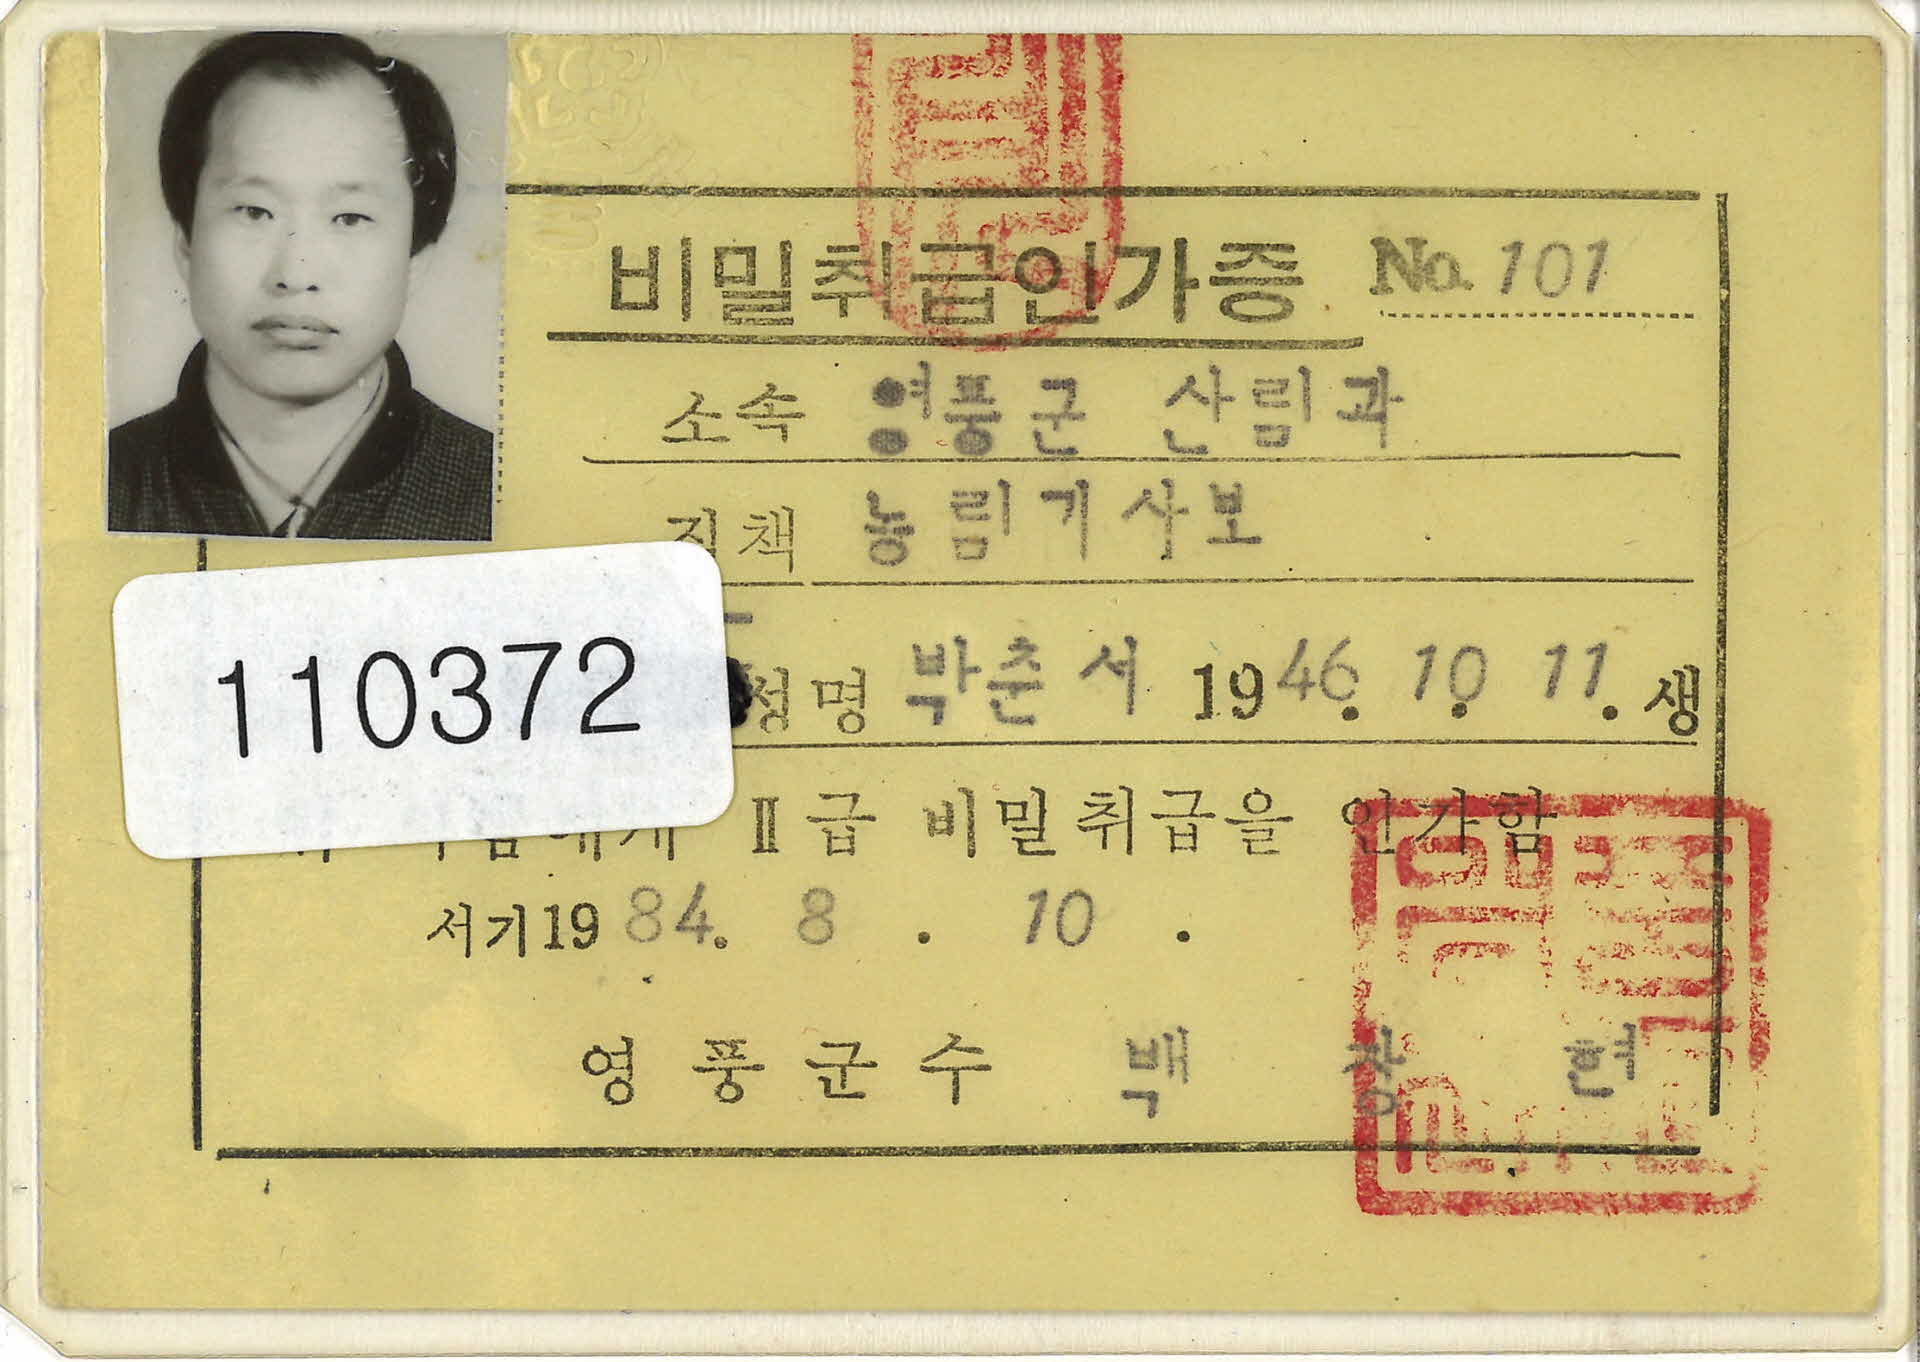 비밀취급인가증 No. 101
소속 영풍군 산림과
직책 농림기사보
110372
성명 박춘서 1946. 10. 11. 생
Ⅱ급 비밀취급을 인가함
서기 1984. 8. 10.
영풍군수 백창현